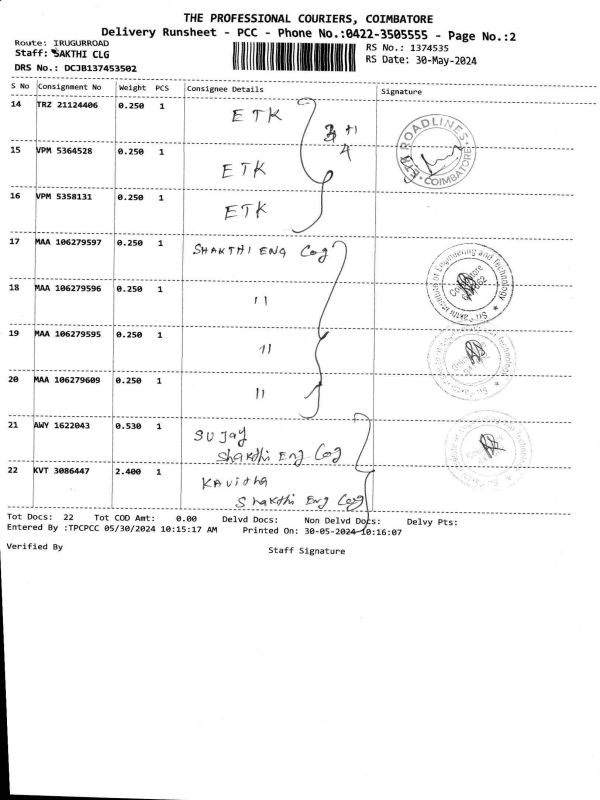 THE PROFESSIONAL COURIERS, COIMBATORE
Delivery Runsheet - PCC - Phone No.:0422-3505555 - Page No.:2
Route: IRUGURROAD
Staff: SAKTHI CLG
DRS No.: DCJB137453502
RS No.: 1374535
RS Date: 30-May-2024
S No Consignment No Weight PCS Consignee Details Signature
14 TRZ 21124406 0.250 1 ETK
ROADLINES
COIMBATORE
15 VPM 5364528 0.250 1 ETK
16 VPM 5358131 0.250 1 ETK
17 MAA 106279597 0.250 1 SHAKTHI ENG Cog
Institute of Engineering and Technology
18 MAA 106279596 0.250 1 11
19 MAA 106279595 0.250 1 11
20 MAA 106279609 0.250 1 11
21 AWY 1622043 0.530 1 SUJAY
Shakthi Eng Cog
22 KVT 3086447 2.400 1 Kavitha
Shakthi Eng Cog
Tot Docs: 22 Tot COD Amt: 0.00 Delvd Docs: Non Delvd Docs: Delvy Pts:
Entered By :TPCPCC 05/30/2024 10:15:17 AM Printed On: 30-05-2024 10:16:07
Verified By
Staff Signature